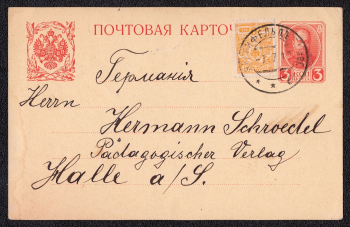 ПОЧТОВАЯ КАРТОЧКА
Германія
Herrn
Hermann Schroedel
Pädagogischer Verlag
Halle a/S.
3 3